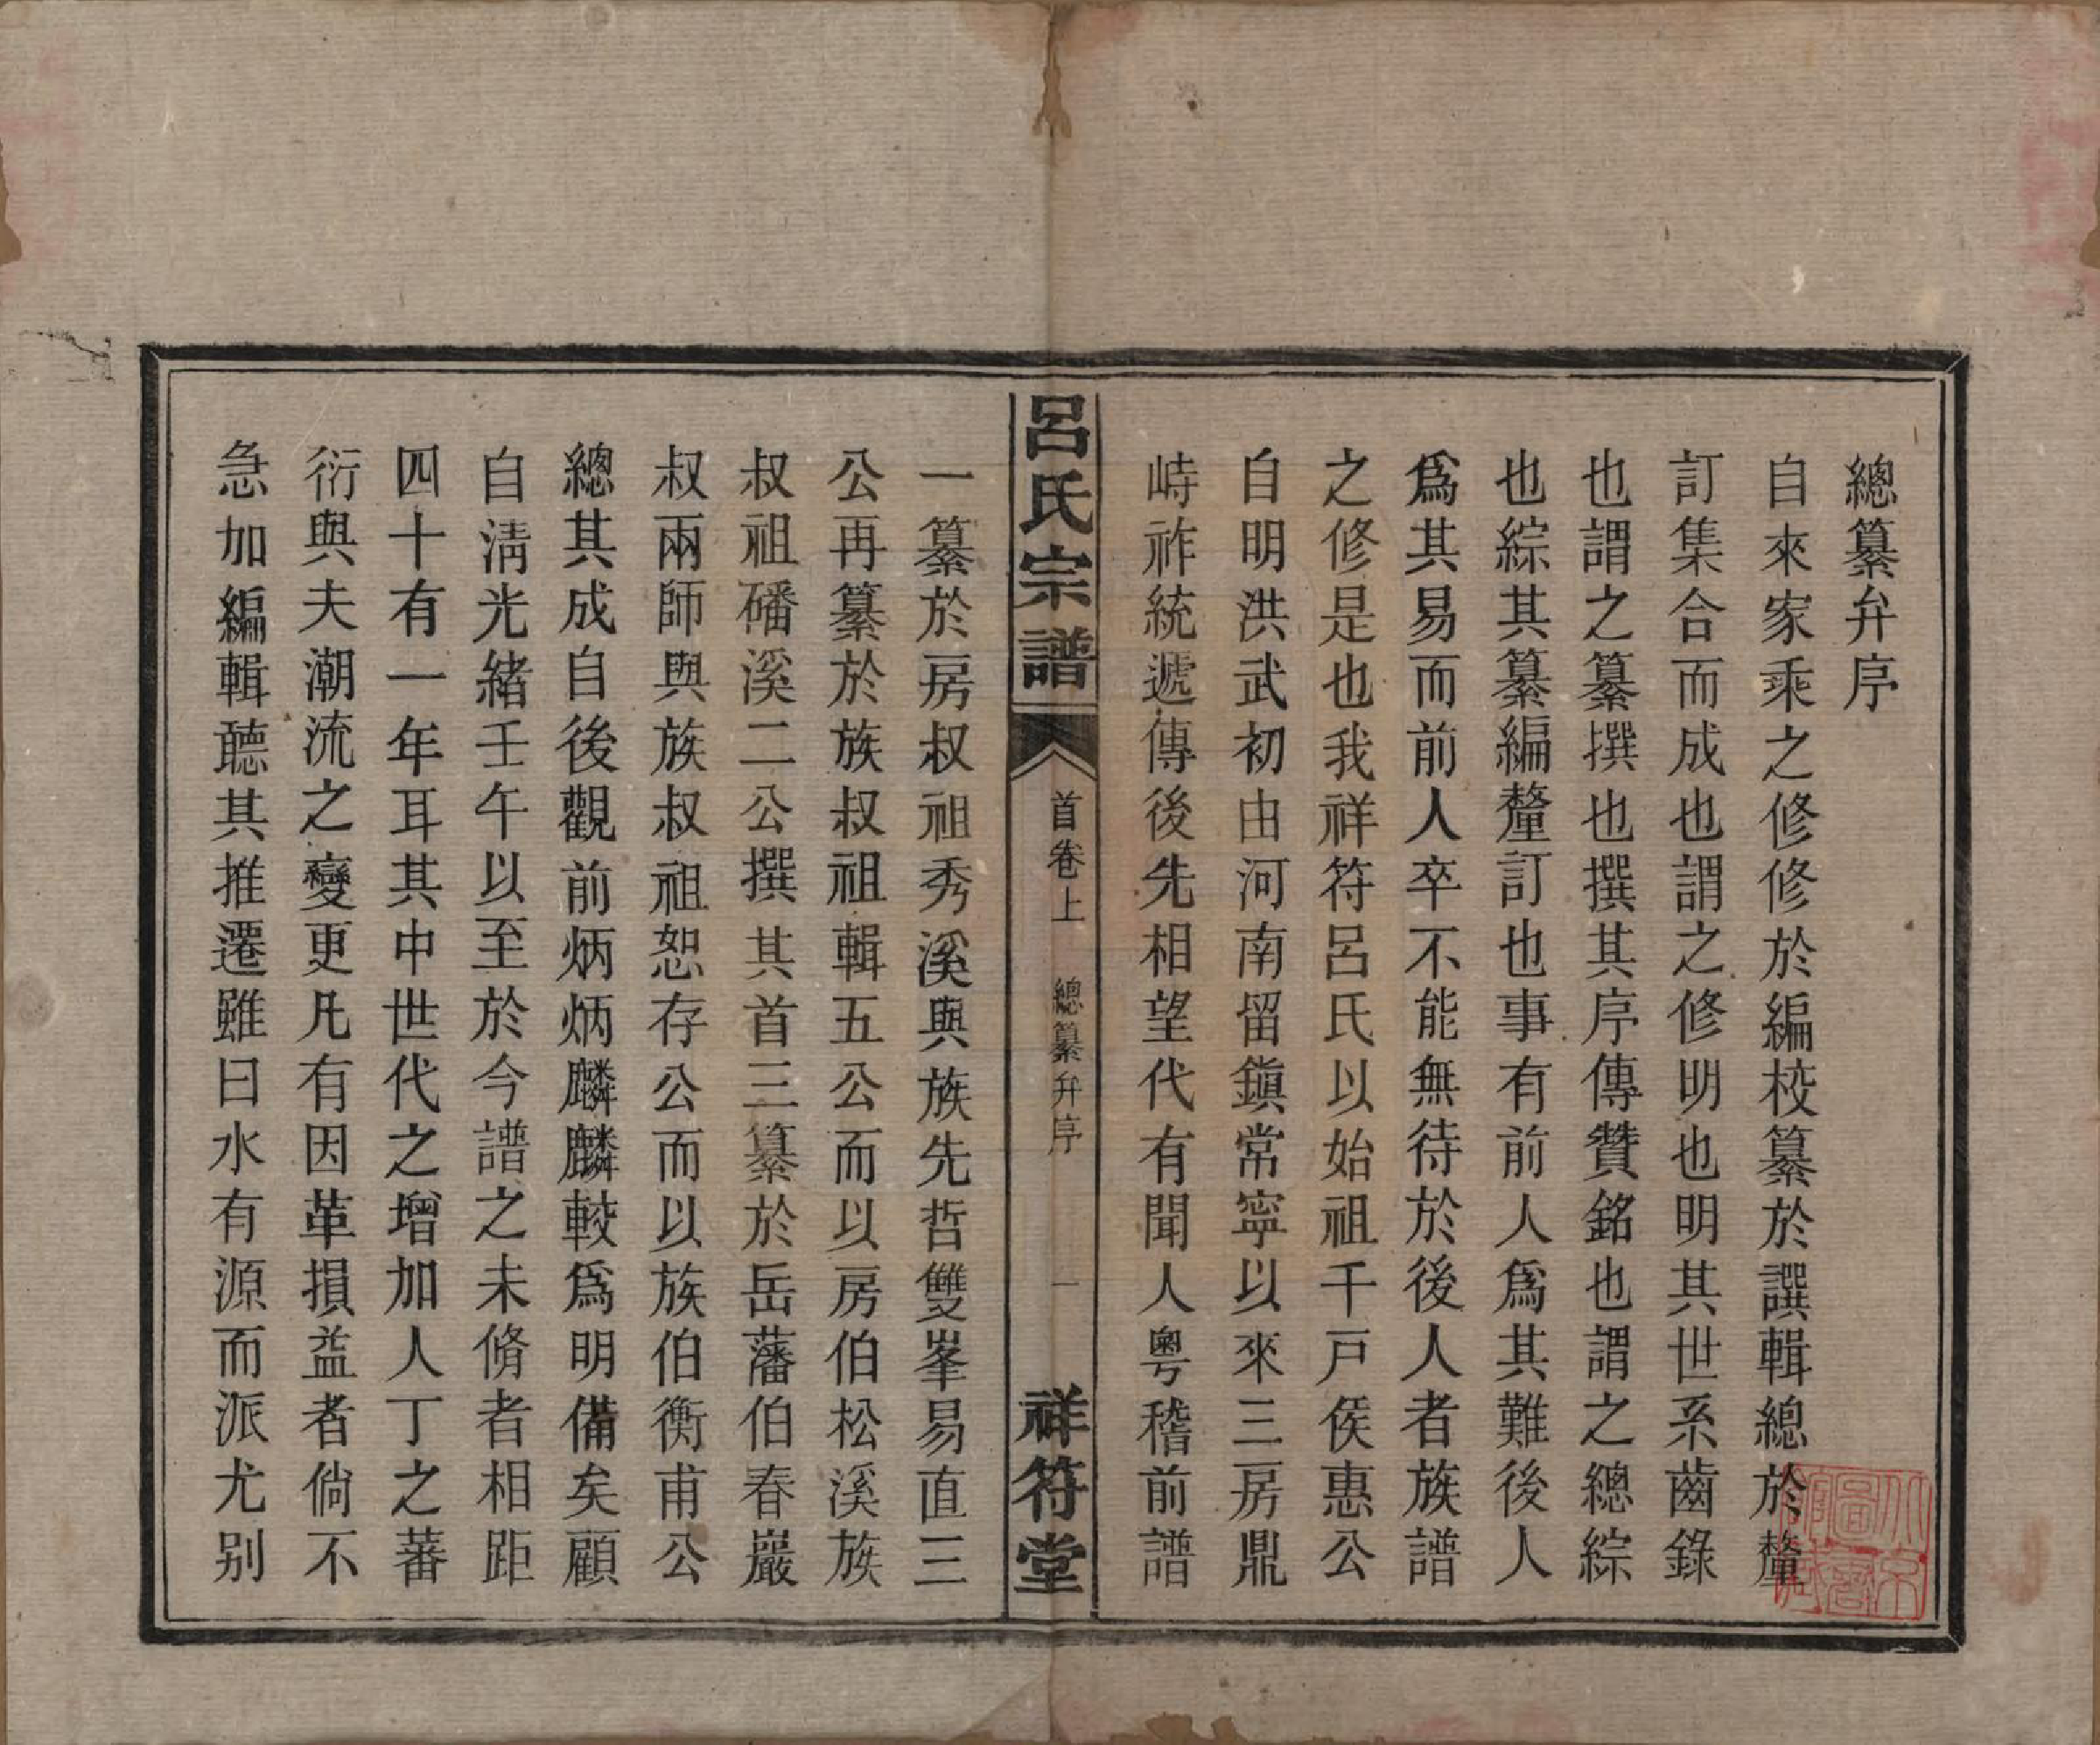 總纂弁序
自來家乘之修修於編校纂於譔輯總於釐
訂集合而成也謂之修明也明其世系齒錄
也謂之纂撰也撰其序傳贊銘也謂之總綜
也綜其纂編釐訂也事有前人爲其難後人
爲其易而前人卒不能無待於後人者族譜
之修是也我祥符呂氏以始祖千戸侯惠公
自明洪武初由河南留鎭常寧以來三房鼎
峙祚統遞傳後先相望代有聞人粤稽前譜
呂氏宗譜
首卷上
總纂弁序
一
祥符堂
一纂於房叔祖秀溪與族先哲雙峯易直三
公再纂於族叔祖輯五公而以房伯松溪族
叔祖磻溪二公撰其首三纂於岳藩伯春巖
叔兩師與族叔祖恕存公而以族伯衡甫公
總其成自後觀前炳炳麟麟較爲明備矣顧
自淸光緒壬午以至於今譜之未脩者相距
四十有一年耳其中世代之增加人丁之蕃
衍與夫潮流之變更凡有因革損益者倘不
急加編輯聽其推遷雖曰水有源而派尤别